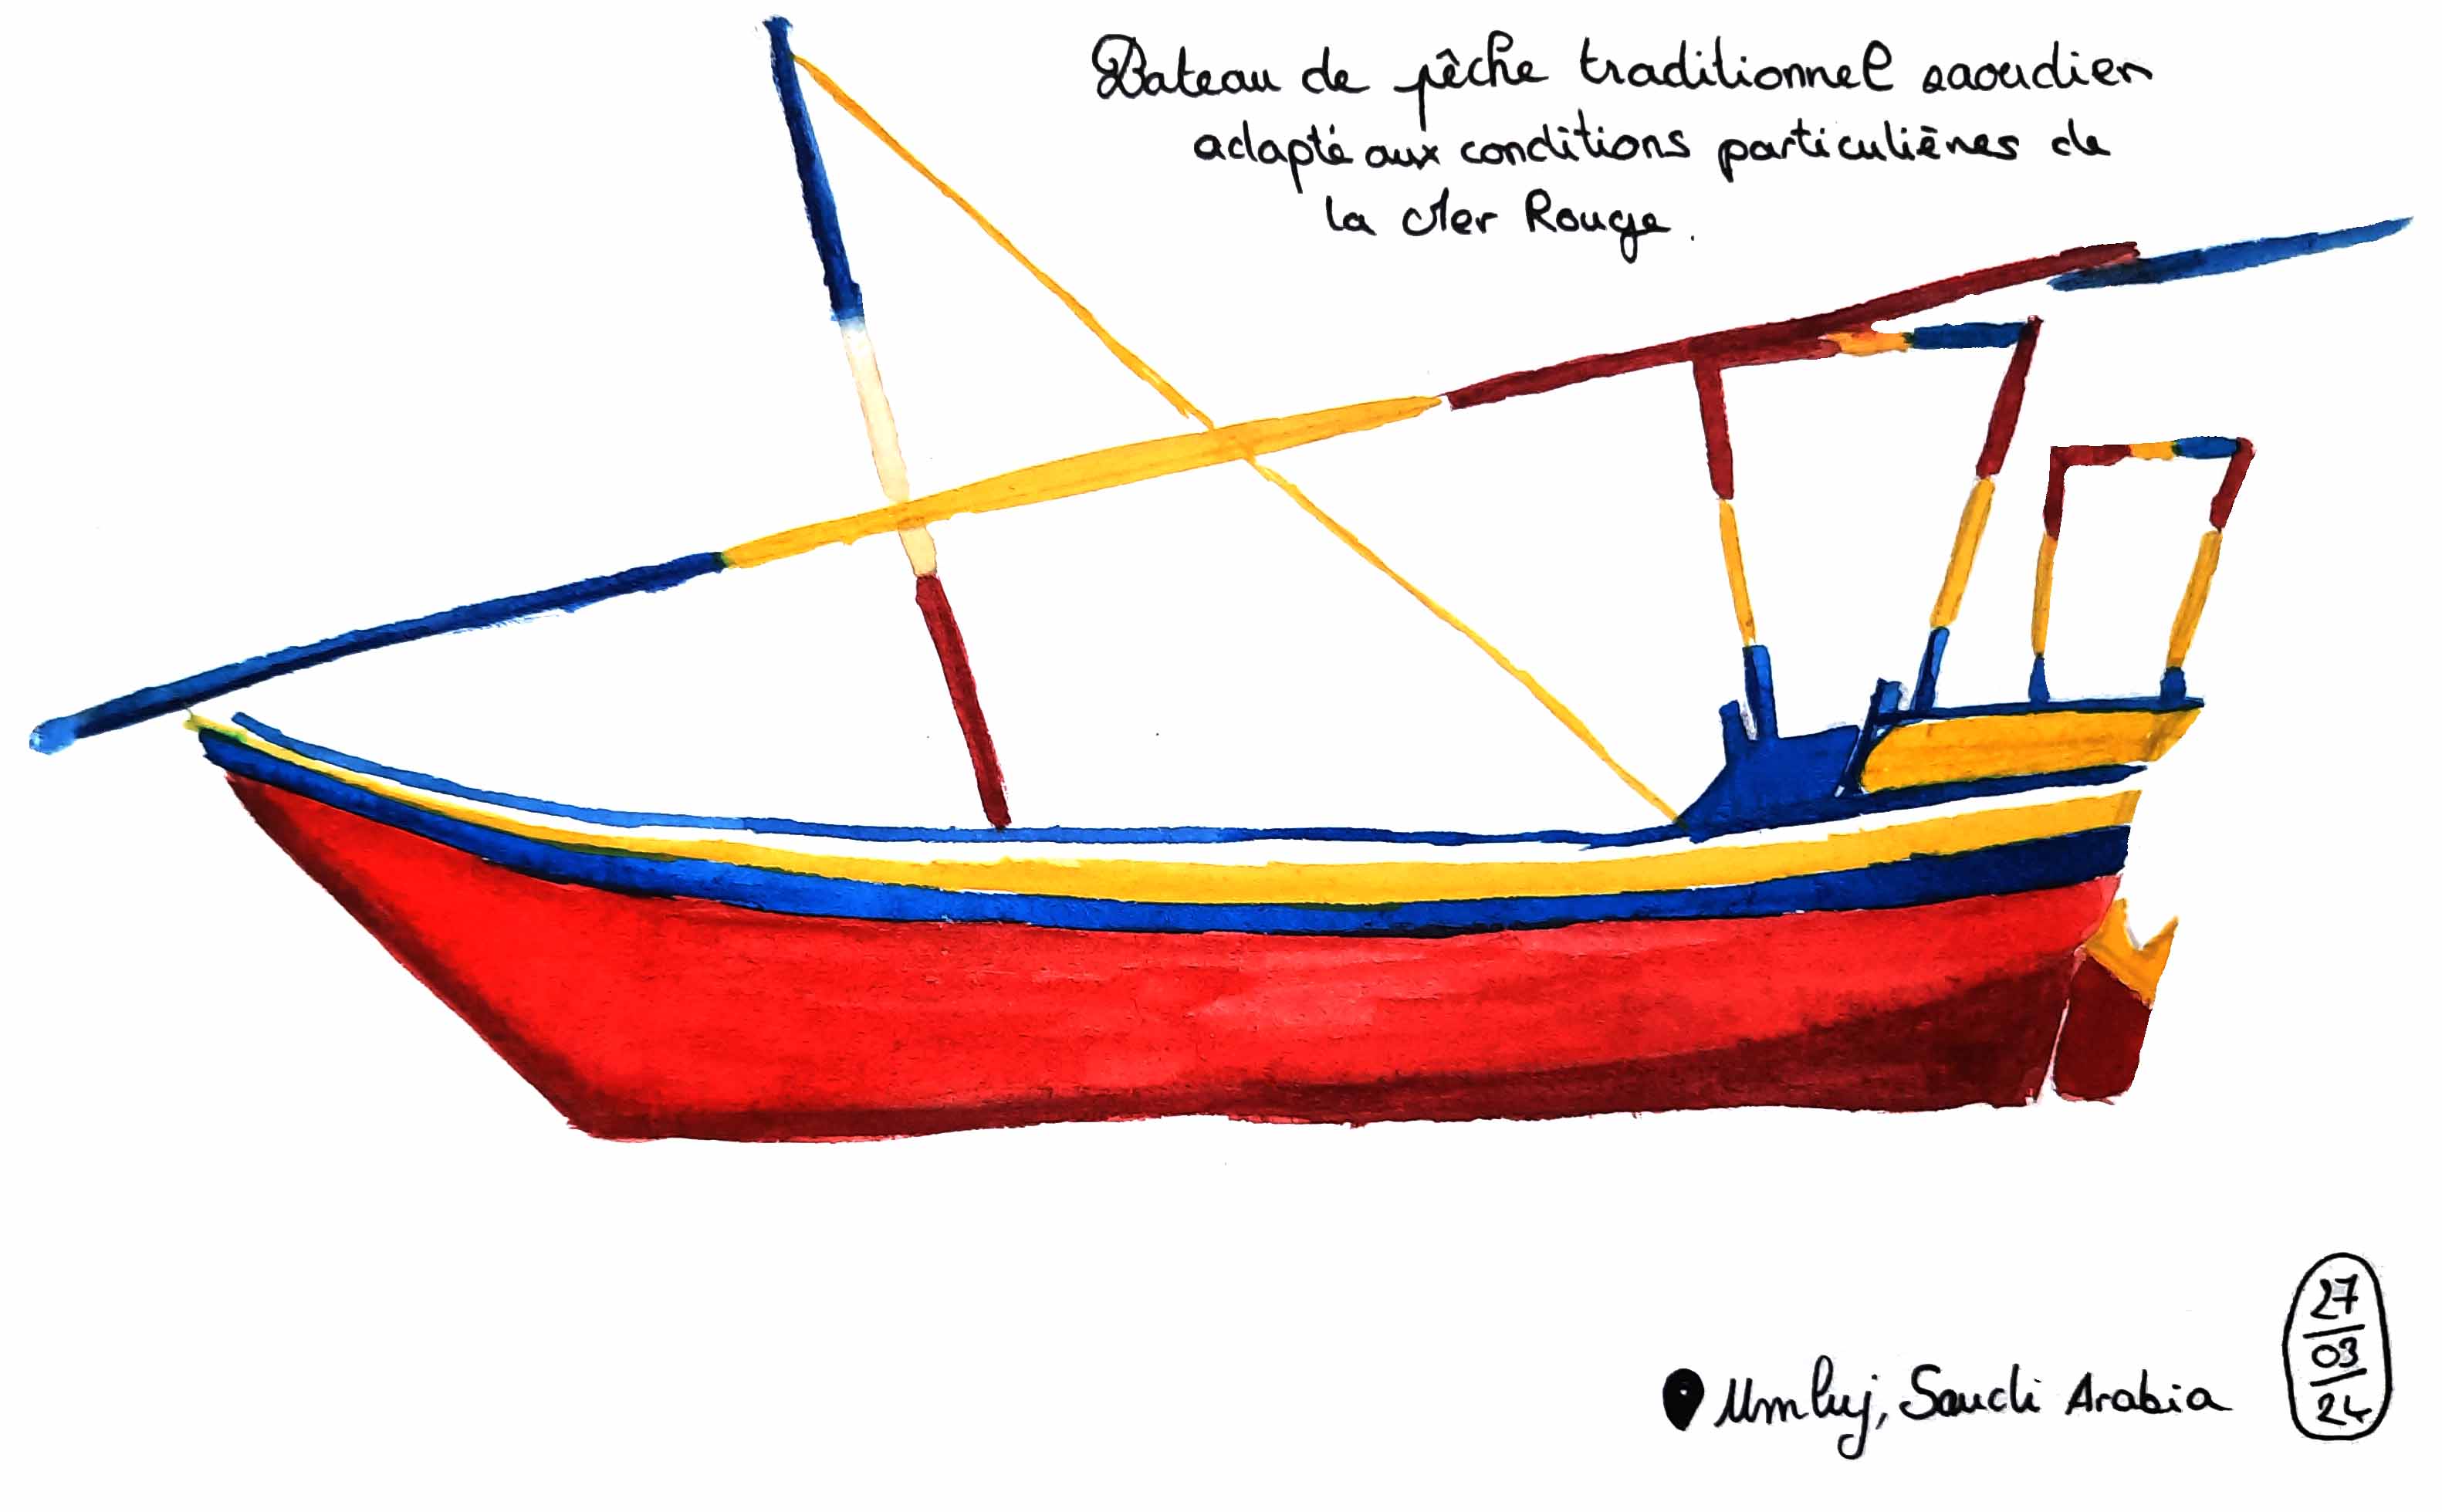 Bateau de pêche traditionnel saoudien
adapté aux conditions particulières de
la Mer Rouge.
Umluj, Saudi Arabia
27
03
24